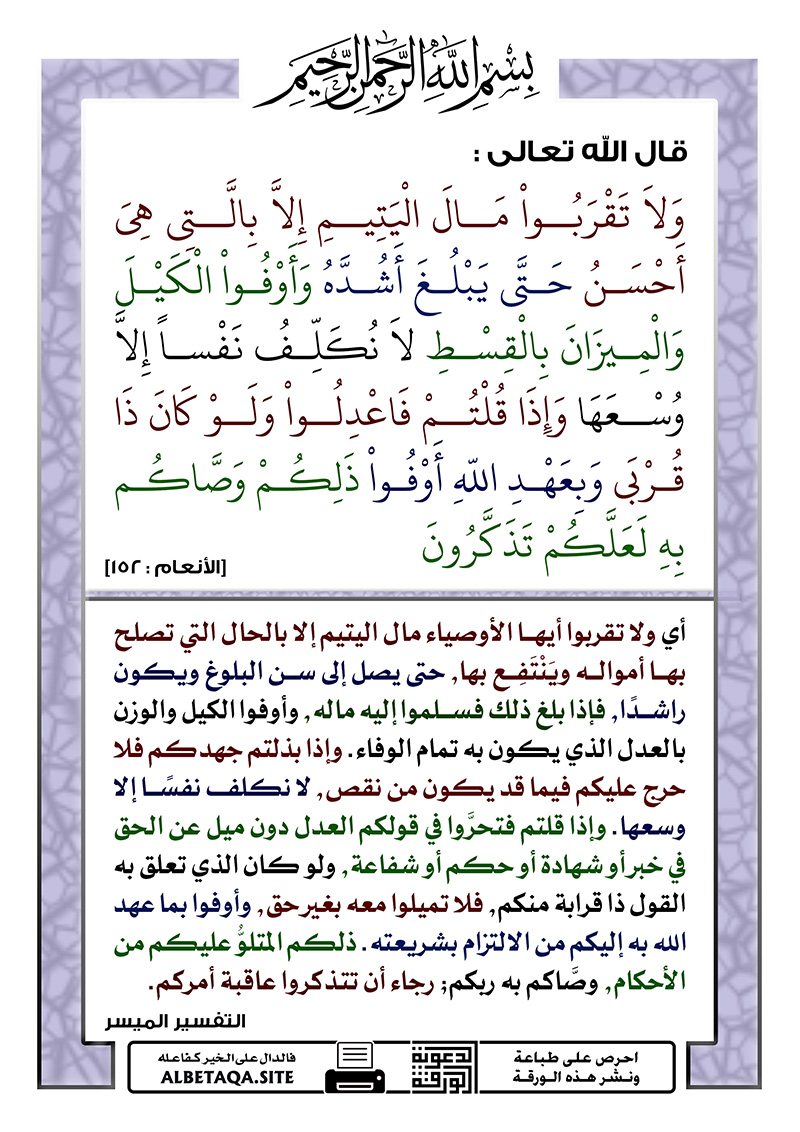 بِسْمِ اللَّهِ الرَّحْمَٰنِ الرَّحِيمِ
قال الله تعالى :
وَلاَ تَقْرَبُواْ مَالَ الْيَتِيمِ إِلاَّ بِالَّتِي هِيَ
أَحْسَنُ حَتَّى يَبْلُغَ أَشُدَّهُ وَأَوْفُواْ الْكَيْلَ
وَالْمِيزَانَ بِالْقِسْطِ لاَ نُكَلِّفُ نَفْساً إِلاَّ
وُسْعَهَا وَإِذَا قُلْتُمْ فَاعْدِلُواْ وَلَوْ كَانَ ذَا
قُرْبَى وَبِعَهْدِ اللّهِ أَوْفُواْ ذَلِكُمْ وَصَّاكُم
بِهِ لَعَلَّكُمْ تَذَكَّرُونَ
[الأنعام : ١٥٢]
أي ولا تقربوا أيها الأوصياء مال اليتيم إلا بالحال التي تصلح
بها أمواله ويَنْتَفِع بها, حتى يصل إلى سن البلوغ ويكون
راشدًا, فإذا بلغ ذلك فسلموا إليه ماله, وأوفوا الكيل والوزن
بالعدل الذي يكون به تمام الوفاء. وإذا بذلتم جهدكم فلا
حرج عليكم فيما قد يكون من نقص, لا نكلف نفسًا إلا
وسعها. وإذا قلتم فتحرَّوا في قولكم العدل دون ميل عن الحق
في خبر أو شهادة أو حكم أو شفاعة, ولو كان الذي تعلق به
القول ذا قرابة منكم, فلا تميلوا معه بغير حق, وأوفوا بما عهد
الله به إليكم من الالتزام بشريعته. ذلكم المتلوُّ عليكم من
الأحكام, وصَّاكم به ربكم; رجاء أن تتذكروا عاقبة أمركم.
التفسير الميسر
احرص على طباعة
ونشر هذه الورقة
الدعوية
الورقة
فالدال على الخير كفاعله
ALBETAQA.SITE